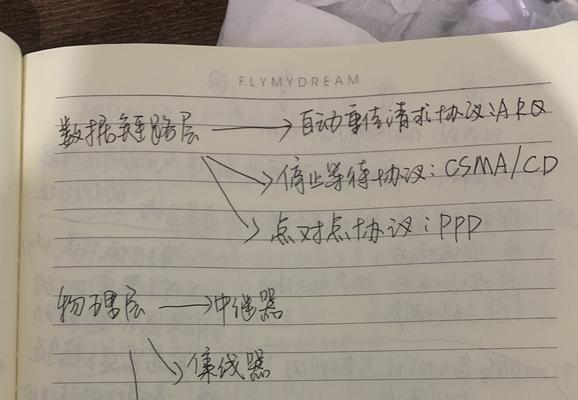 FLYMYDREAM
数据链路层 → 自动重传请求协议:ARQ
停止等待协议:CSMA/CD
点对点协议:PPP
物理层 → 中继器
集线器